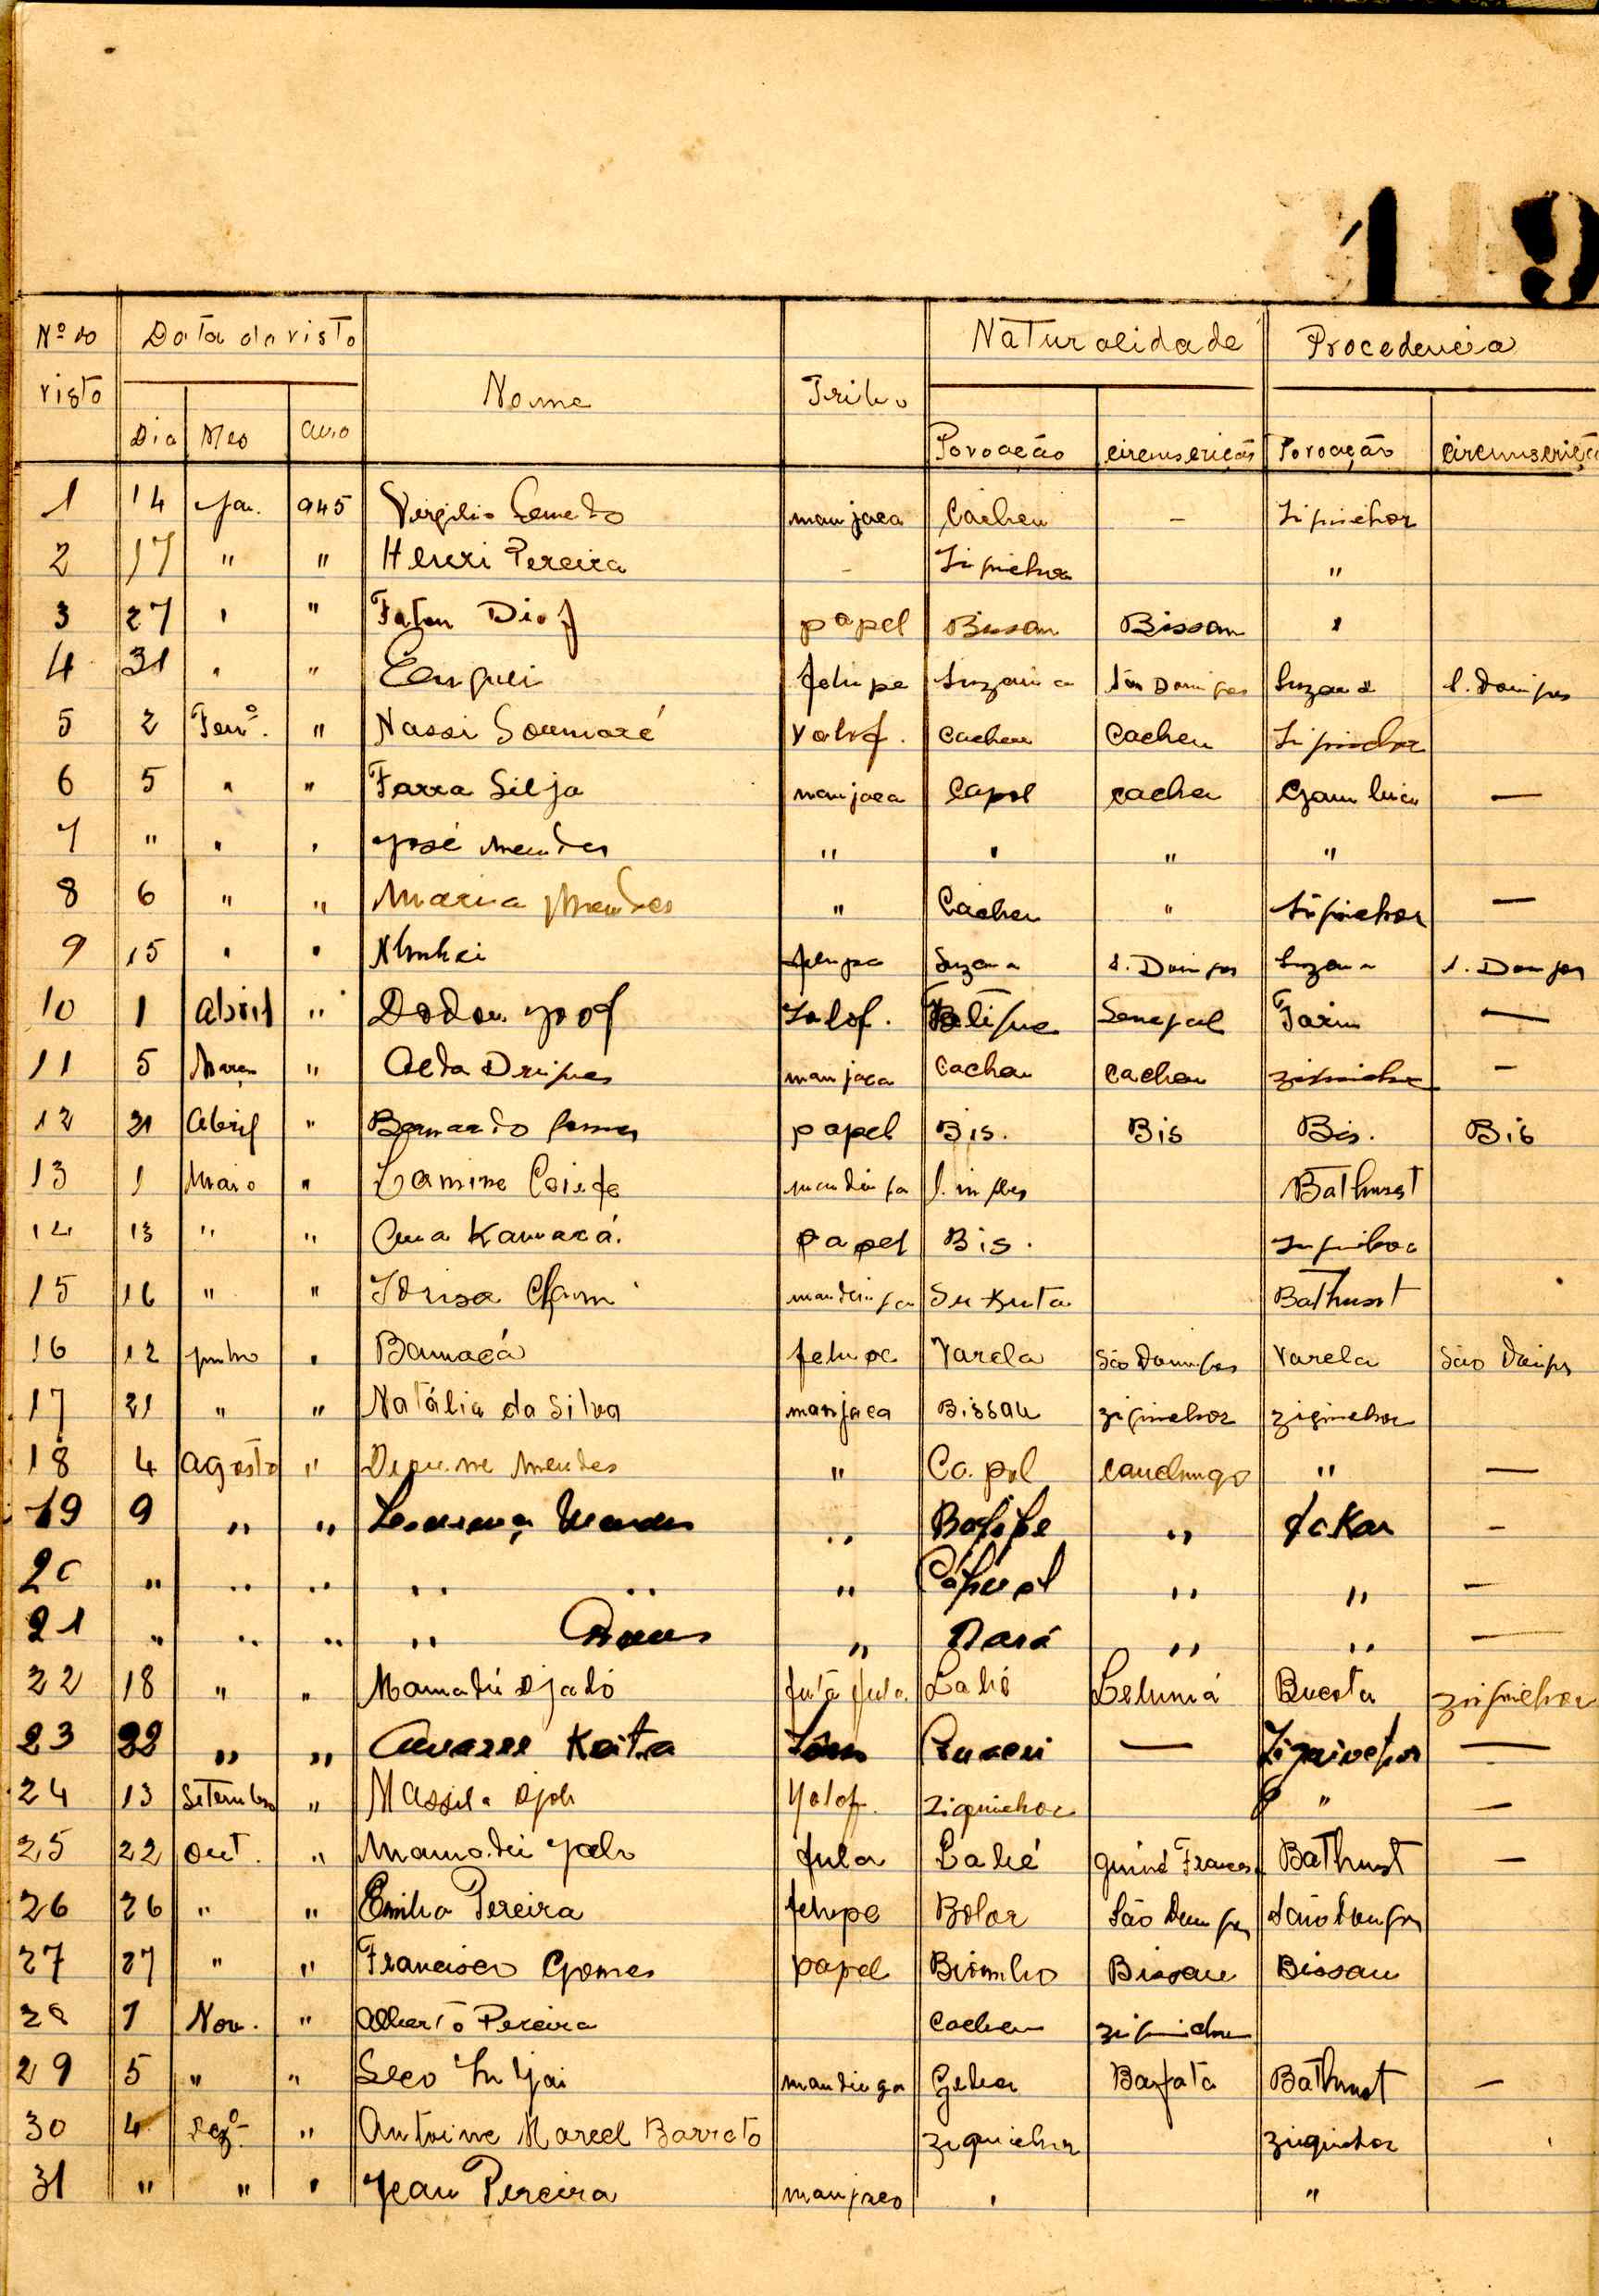 19
Nº do visto Data do visto Nome Tribu Naturalidade Procedencia
Dia Mes ano Povoação circunscrição Povoação circunscriçã
1 14 Jan. 945 Virgilio Semedo manjaca Cacheu – Ziguichor
2 17 " " Henri Pereira - Ziguichor "
3 27 " " Fatou Diof papel Bissau Bissau "
4 31 " " felupe Suzana São Domigos Suzana S. Domigos
5 2 Fevº. " Nassi Soumaré Yalof. Cacheu Cacheu Ziguichor
6 5 " " Farra Silja manjaca Capol cacheu Gambia —
7 " " " José Mendes " " " "
8 6 " " Maria Mendes " Cacheu " Ziguichor —
9 15 " " felupe Suzana S. Domigos Suzana S. Domigos
10 1 abril " Dodou Joof Jalof. Senegal Farim —
11 5 Março " Alda manjaca Cacheu Cacheu ziguichor –
12 21 abril " Bernardo Gomes papel Bis. Bis Bis. Bis
13 1 Maio " Lamine mandinga Bathurst
14 13 " " Ana Kamará. papel Bis. Ziguichor
15 16 " " Idrisa mandinga Su Kuta Bathurst
16 12 junho " Bamacá felupe Varela São Domigos Varela São Domigos
17 21 " " Natália da Silva manjaca Bissau ziguichor ziguichor
18 4 agosto " Mendes " Ca. pol canchungo " —
19 9 " " Mendes " " dakar –
20 " " " " " " " " –
21 " " " " " Dará " " —
22 18 " " Mamadú Djaló futa fula. Labé ziguichor
23 22 " " Keita — Ziguichor —
24 13 Setembro " Massil. Djob Yolof. ziguichor " —
25 22 out. " Mamadú Jalo fula Labé guiné Frances. Bathurst –
26 26 " " Emilia Pereira felupe Bolor São Domigos São Domigos
27 27 " " Francisco Gomes papel Biombo Bissau Bissau
28 1 Nov. " Alberto Pereira Cacheu ziguichor
29 5 " " Seco Injai mandinga Geba Bafata Bathurst –
30 4 Dezº. " Antoine Marcel Barreto ziguichor ziguichor
31 " " " Jean Pereira manjaco " "